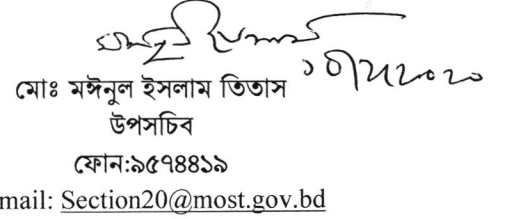 মোঃ মঈনুল ইসলাম তিতাস
উপসচিব
ফোন:৯৫৭৪৪১৯
mail: Section20@most.gov.bd